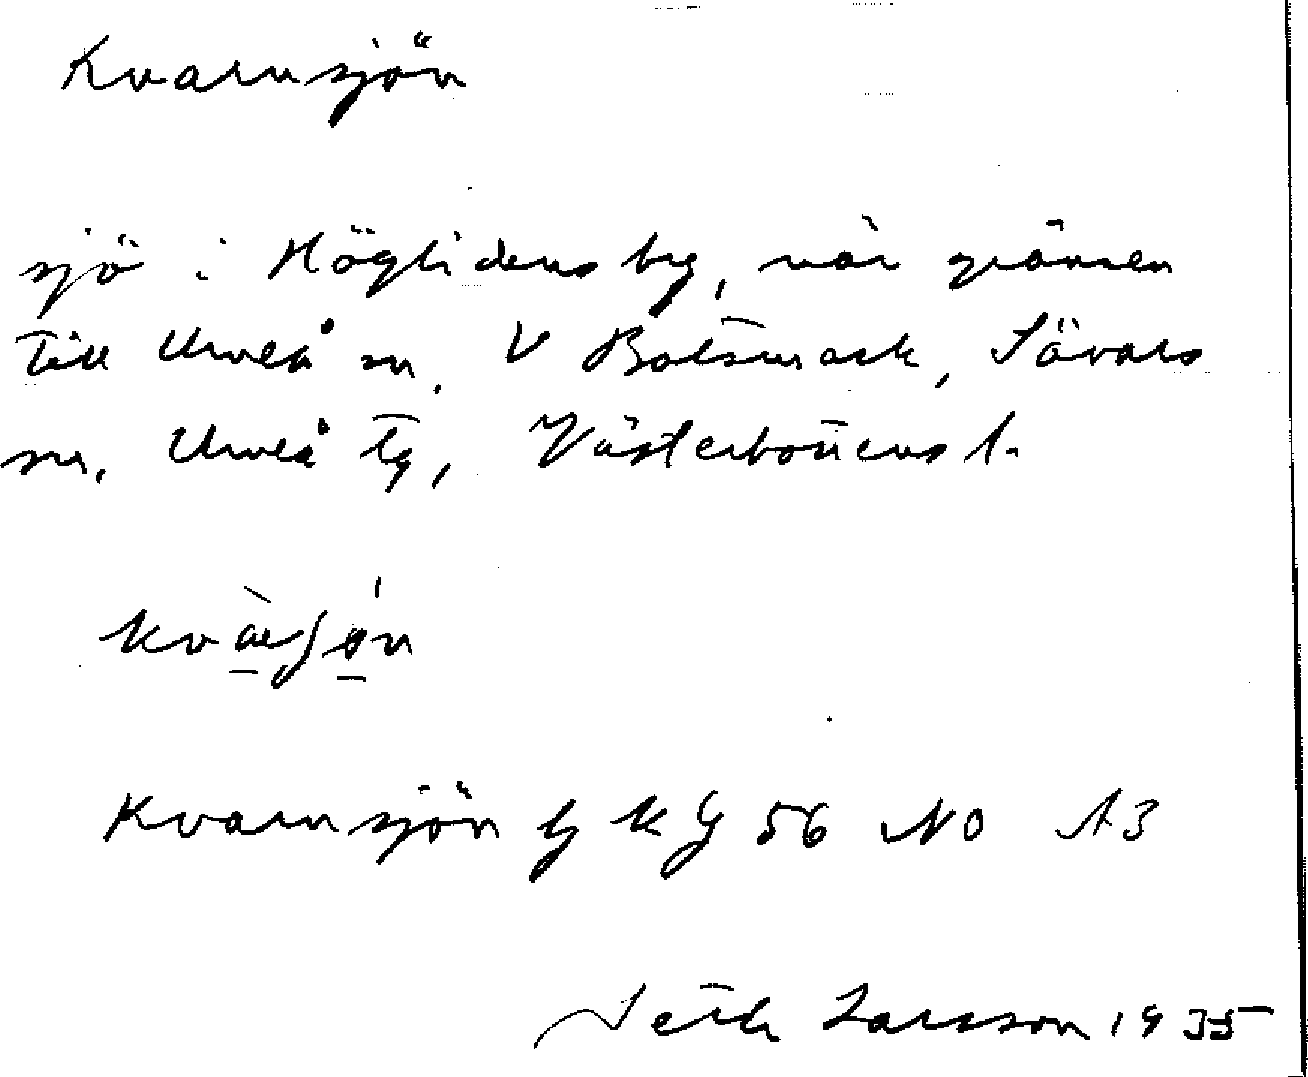 Kvarnsjön
sjö i Höglidens by, när gränsen
till Umeå sn, V Botsmark, Sävars
sn, Umeå tg, Västerbottens l.
Kvarnsjön Gk bl 56 NO A3
Seth Larsson 1935